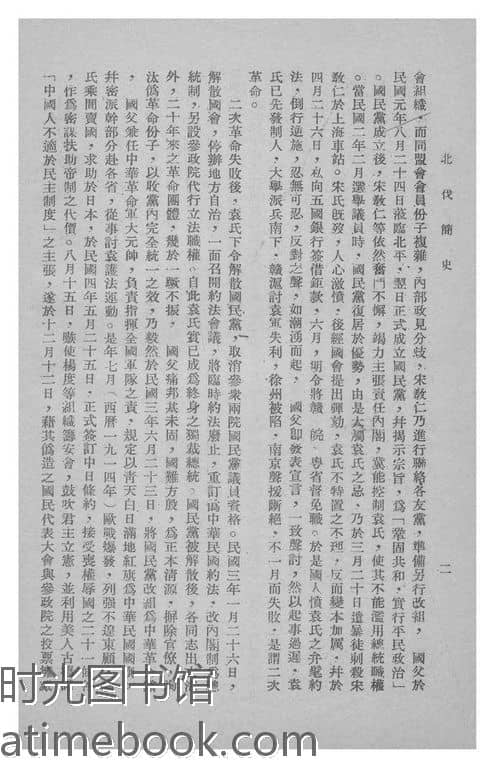 北伐簡史
二
會組織，而同盟會會員份子複雜，內部政見分歧，宋敎仁乃進行聯絡各友黨，準備另行改組，國父於
民國元年八月二十四日蒞臨北平，翌日正式成立國民黨，幷揭示宗旨，爲「鞏固共和，實行平民政治」
。國民黨成立後，宋敎仁等依然奮鬥不懈，竭力主張責任內閣，冀能控制袁氏，使其不能濫用總統職權
。當民國二年二月選舉議員時，國民黨復居於優勢，由是大觸袁氏之忌，乃於三月二十日遣暴徒刺殺宋
敎仁於上海車站。宋氏旣歿，人心激憤，後經國會提出彈劾，袁氏不特置之不理，反而變本加厲，幷於
四月二十六日，私向五國銀行簽借鉅款，六月，明令將贛　皖　粵省督免職。於是國人憤袁氏之弁髦約
法，倒行逆施，忍無可忍，反對之聲，如潮湧而起，　國父卽發表宣言，一致聲討，然以起事過遲，袁
氏已先發制人，大舉派兵南下，贛滬討袁軍失利，徐州被陷，南京聲援斷絕，不一月而失敗，是謂二次
革命。
二次革命失敗後，袁氏下令解散國民黨，取消參衆兩院國民黨議員資格。民國三年一月二十六日，
解散國會，停辦地方自治，一面召開約法會議，將臨時約法廢止，重訂爲中華民國約法，改內閣制爲總
統制，另設參政院代行立法職權。自此袁氏實已成爲終身之獨裁總統。國民黨被解散後，各同志出
外，二十年來之革命團體，幾於一蹶不振，　國父痛邦基未固，國難方殷，爲正本清源，摒除官僚，
汰僞革命份子，以收黨內完全統一之效，乃毅然於民國三年六月二十三日，將國民黨改組爲中華革
國父兼任中華革命軍大元帥，負責指揮全國軍隊之責，規定以靑天白日滿地紅旗爲中華民國國
幷密派幹部分赴各省，從事討袁護法運動。是年七月（西曆一九一四年）歐戰爆發，列强不遑東顧
氏乘間賣國，求助於日本，於民國四年五月二十五日，正式簽訂中日條約，接受喪權辱國之二十一
，作爲密謀扶助帝制之代價。八月十五日，嗾使楊度等組織籌安會，鼓吹君主立憲，並利用美人古
「中國人不適於民主制度」之主張，遂於十二月十二日，藉其僞造之國民代表大會與參政院之投票
时光图书馆
atimebook.com